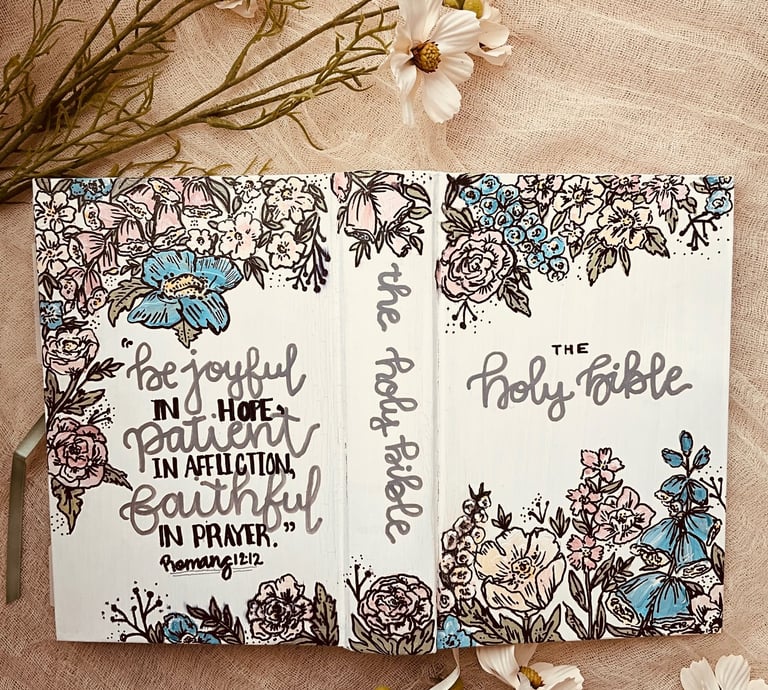 "be joyful
IN HOPE,
patient
IN AFFLICTION,
faithful
IN PRAYER."
Romans 12:12
the holy bible
THE
holy bible